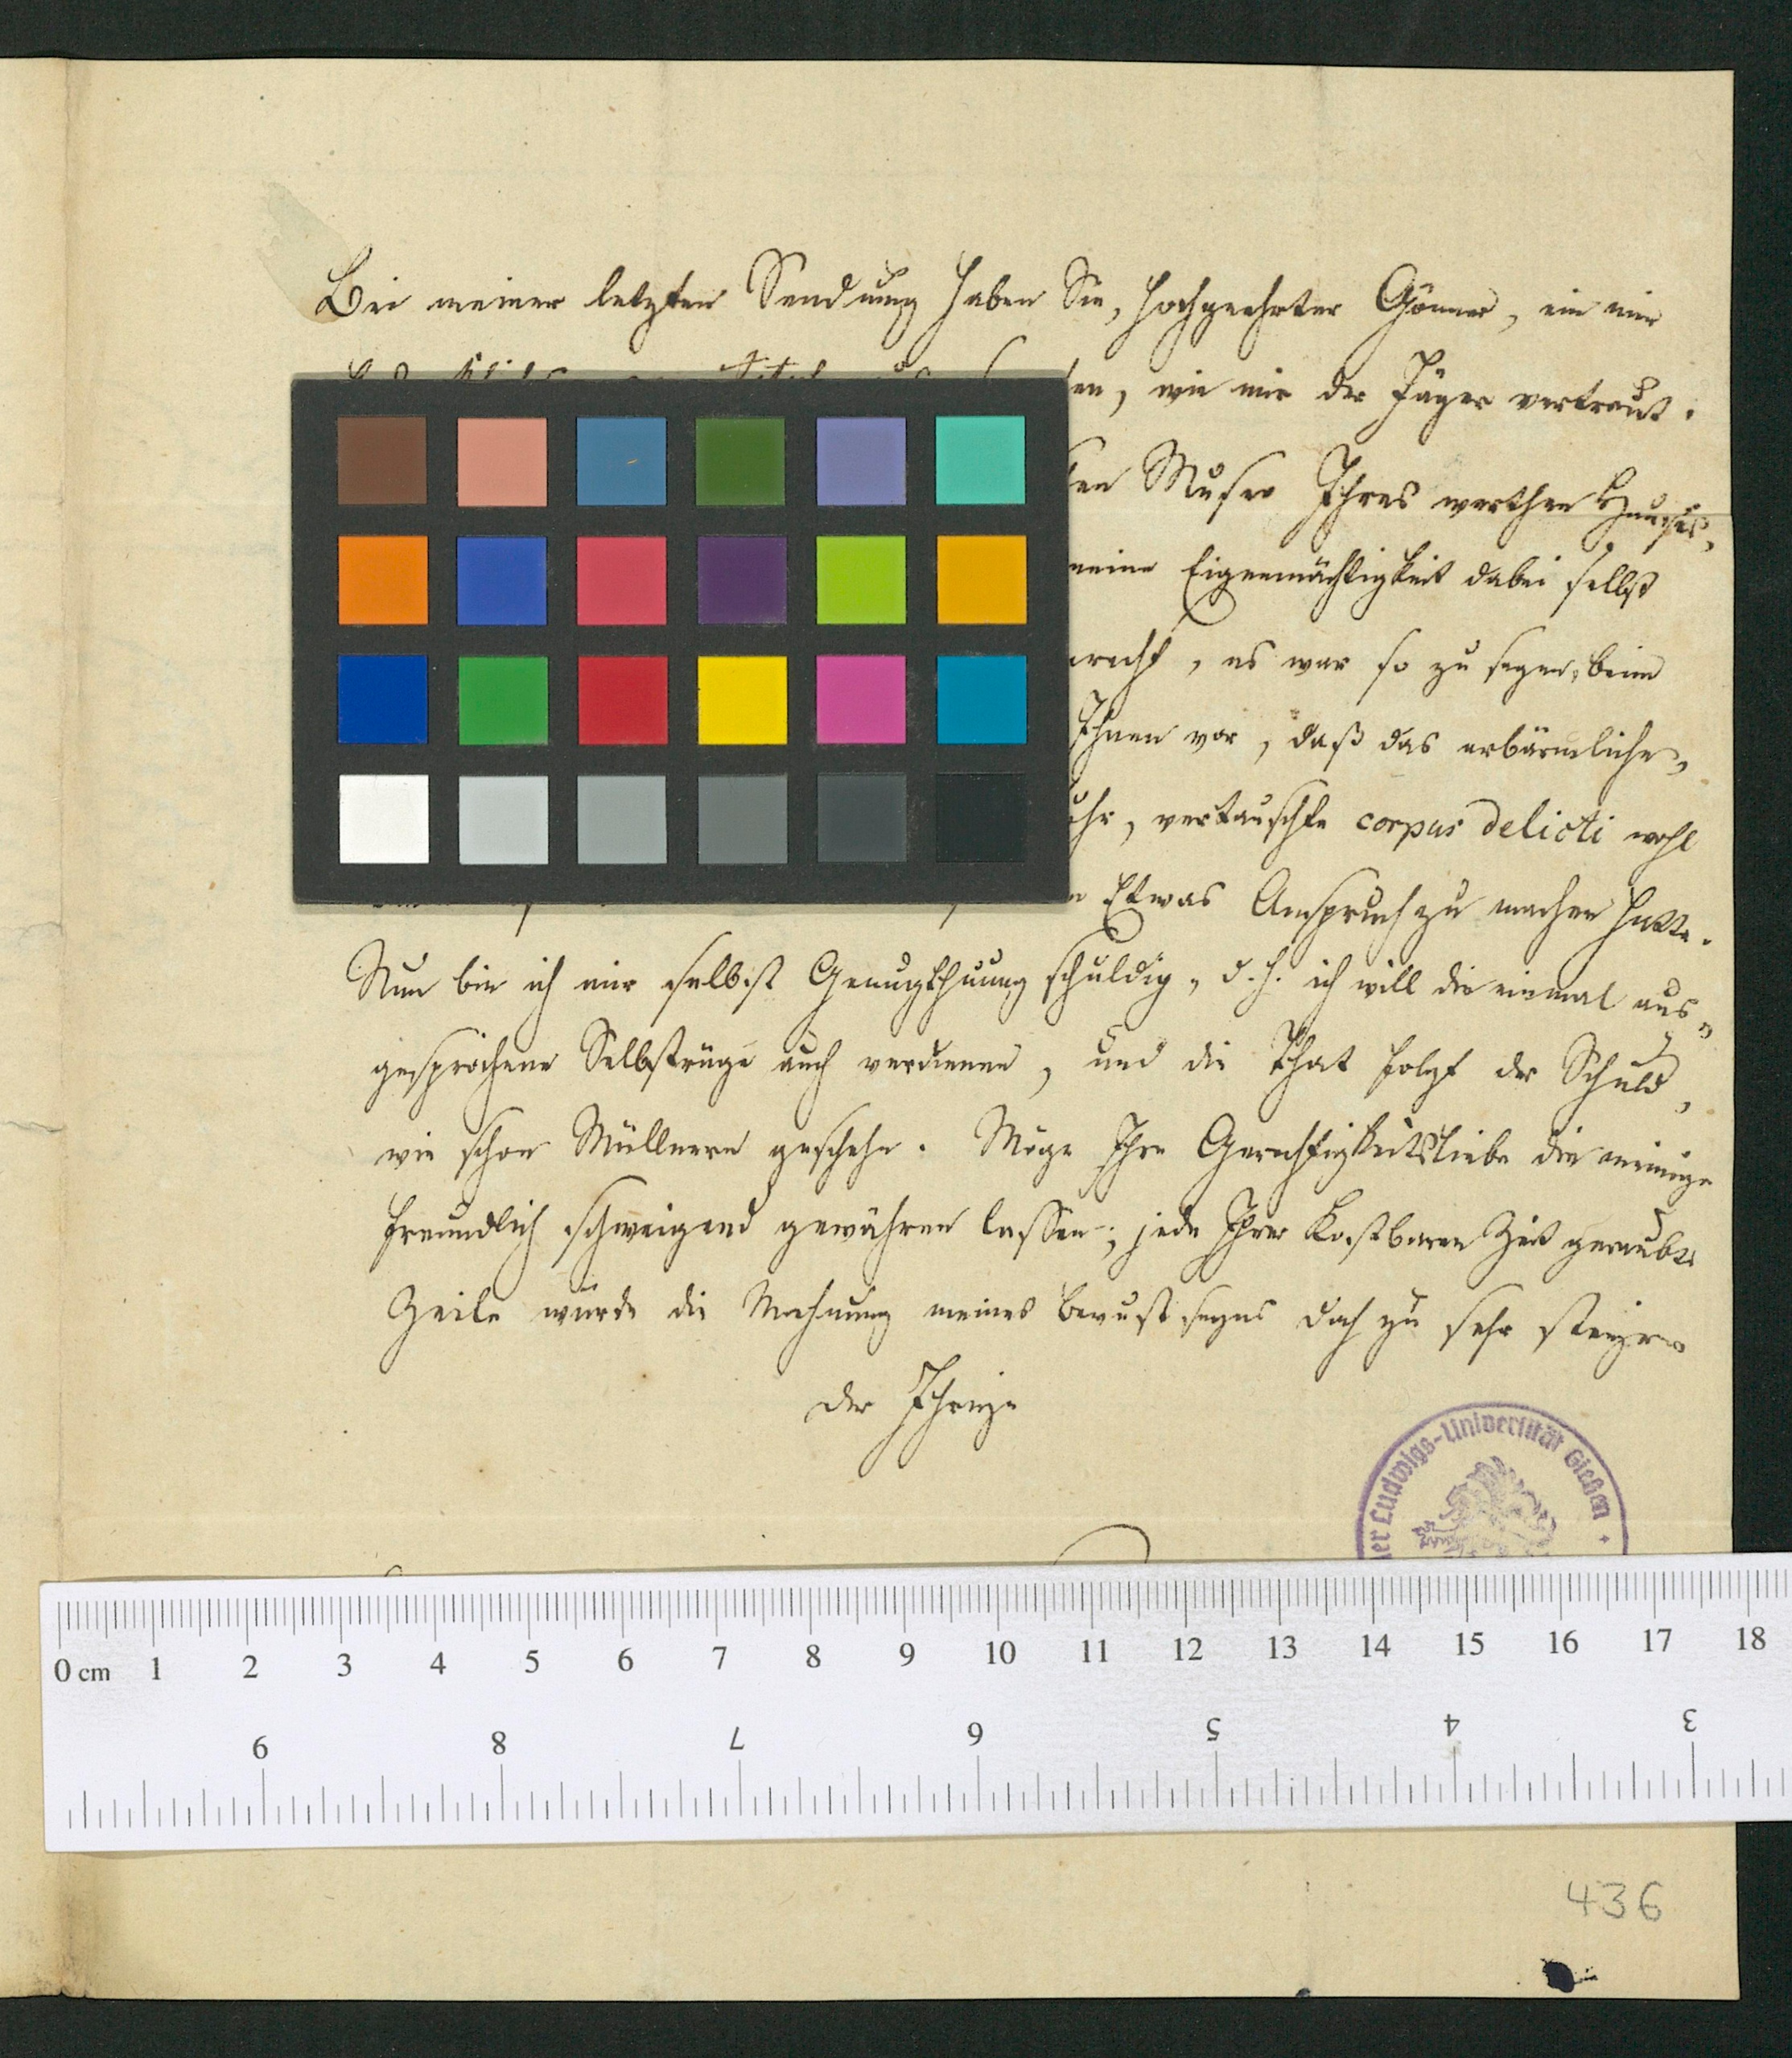 Bei meiner letzten Sendung haben Sie, hochgeehrter Gönner, ein mir
wie mir der Jäger vertraut.
Musen Ihres werthen Hauses,
meine Eigenmächtigkeit dabei selbst
es war so zu sagen, beim
Ihnen vor, daß das erbärmliche,
vertauschte corpus delicti wohl
Etwas Anspruch zu machen hatte.
Nun bin ich mir selbst Genugthuung schuldig, d. h. ich will die einmal aus=
gesprochene Selbstrüge auch verdienen, und die That folgt der Schuld,
wie schon Müllnern geschehn. Möge Ihre Gerechtigkeitsliebe die meinige
freundlich schweigend gewähren lassen; jede Ihrer kostbaren Zeit geraubte
Zeile würde die Mahnung meines Bewustseyns doch zu sehr steigern
der Ihrige
der Ludwigs-Universität Gießen
0 cm 1 2 3 4 5 6 7 8 9 10 11 12 13 14 15 16 17 18
9 8 7 6 5 4 3
436